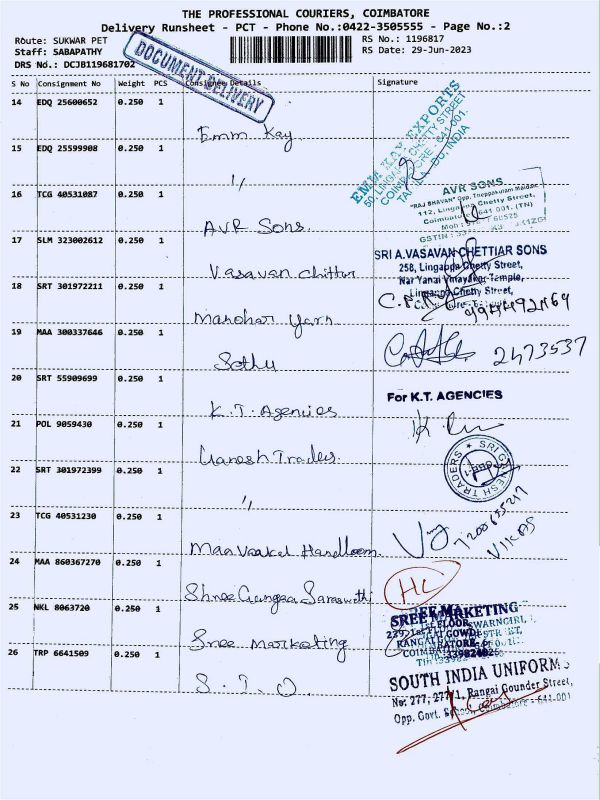 THE PROFESSIONAL COURIERS, COIMBATORE
Delivery Runsheet - PCT - Phone No.:0422-3505555 - Page No.:2
Route: SUKWAR PET
Staff: SABAPATHY
DRS No.: DCJB119681702
RS No.: 1196817
RS Date: 29-Jun-2023
DOCUMENT DELIVERY
S No Consignment No Weight PCS Consignee Details Signature
14 EDQ 25600652 0.250 1 Emm Kay
EMM KAY EXPORTS
50, LINGAPPA CHETTY STREET
COIMBATORE - 641-001.
15 EDQ 25599908 0.250 1 "
16 TCG 40531087 0.250 1 AVR Sons.
AVR SONS.
"RAJ BHAVAN" Opp. Theppakulam Maidan
112, Lingappa Chetty Street,
Coimbatore 641 001. (TN)
17 SLM 323002612 0.250 1 Vasavan Chittiar
SRI A.VASAVAN CHETTIAR SONS
258, Lingappa Chetty Street,
Nar Yanai Vinayagar Temple,
Lingappa Chetty Street,
18 SRT 301972211 0.250 1 Manohar Yarn
19 MAA 300337646 0.250 1 Sothu
2473537
20 SRT 55909699 0.250 1 K.T. Agencies
For K.T. AGENCIES
21 POL 9059430 0.250 1 Ganesh Traders.
SRI GANESH TRADERS
22 SRT 301972399 0.250 1 "
23 TCG 40531230 0.250 1 Handloom
VIKAS
24 MAA 860367270 0.250 1 Shree Ganga Saraswathi
25 NKL 8063720 0.250 1 Sree Marketing
SREE MARKETING
26 TRP 6641509 0.250 1 S. I. U.
SOUTH INDIA UNIFORMS
No: 277, 277/1, Rangai Gounder Street,
Opp. Govt. School, Coimbatore - 641-001